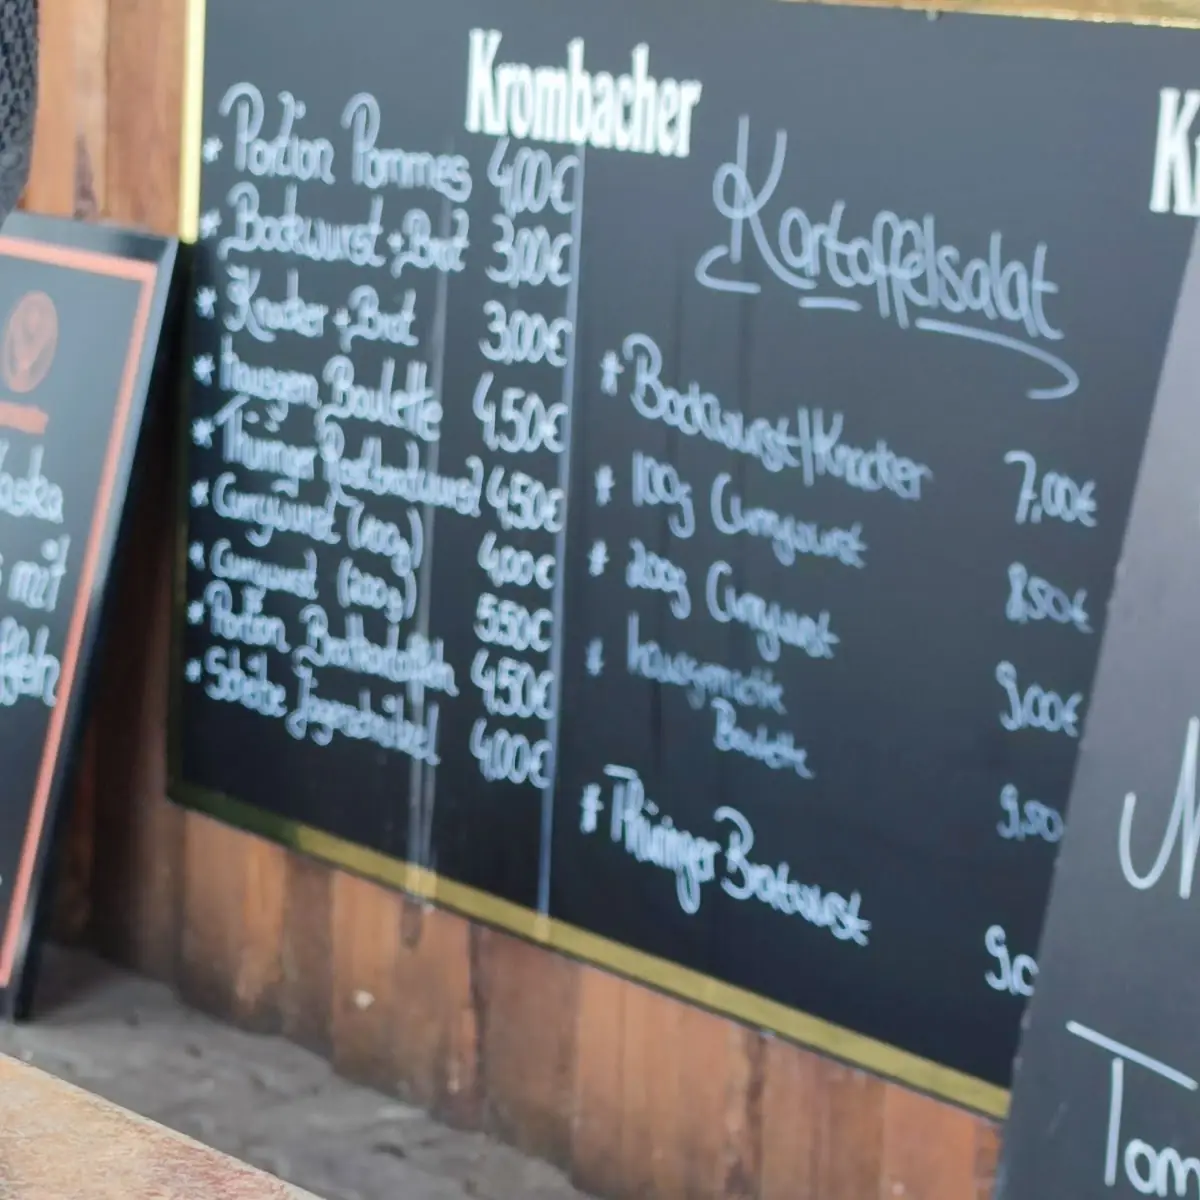 Krombacher
* Portion Pommes 4,00€
* Bockwurst + Brot 3,00€
* Knacker + Brot 3,00€
* hausgem Boulette 4,50€
* Thüringer Rostbratwurst 4,50€
* Currywurst (100g) 4,00€
* Currywurst (200g) 5,50€
* Portion Bratkartoffeln 4,50€
* Scheibe Jagdschnitzel 4,00€
Kartoffelsalat
* Bockwurst/Knacker 7,00€
* 100g Currywurst 8,50€
* 200g Currywurst 9,00€
* hausgemachte
Boulette 9,50
* Thüringer Bratwurst 9,0
mit
Tom